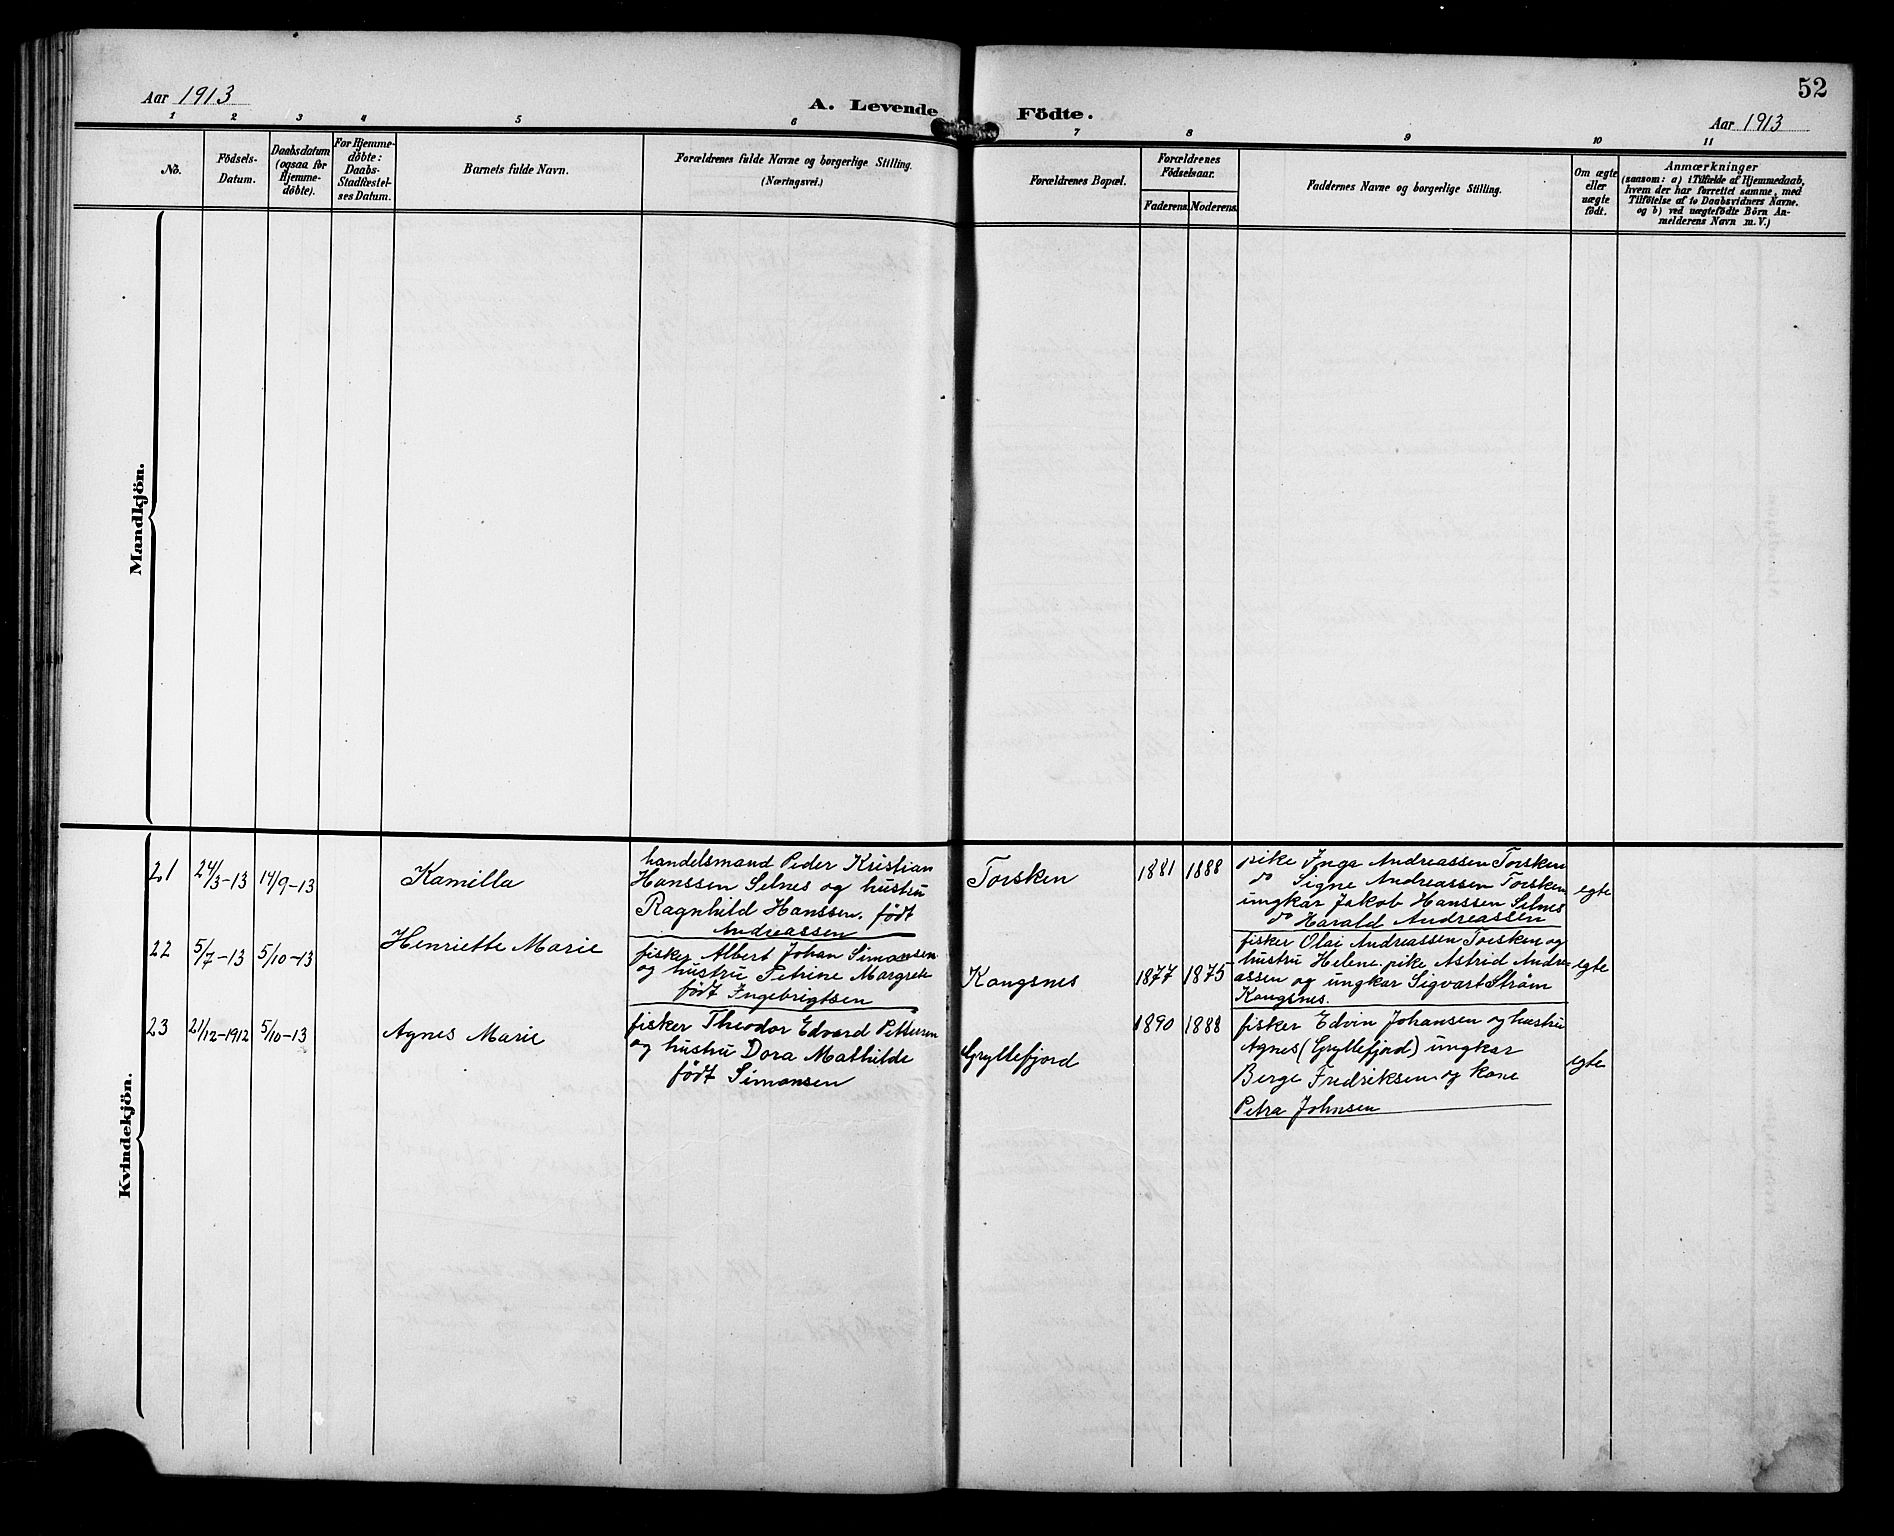 52
Aar 1913
A. Levende Födte.
Aar 1913
1 2 3 4 5 6 7 8 9 10 11
No.
Födsels-
Datum.
Daabsdatum
(ogsaa for
Hjemme-
döbte).
For Hjemme-
döbte:
Daabs-
Stadfæstel-
ses Datum.
Barnets fulde Navn.
Forældrenes fulde Navne og borgerlige Stilling.
(Næringsvei.)
Forældrenes Bopæl.
Forældrenes
Födselsaar.
Faderens. Moderens.
Faddernes Navne og borgerlige Stilling.
Om ægte
eller
uægte
födt.
Anmærkninger
(saasom: a) i Tilfælde af Hjemmedaab,
hvem der har forrettet samme, med
Tilföielse af to Daabsvidners Navne.
og b) ved uægtefödte Börn An-
melderens Navn m. V.)
Mandkjön.
Kvindekjön.
21
24/3-13
14/9-13
Kamilla
handelsmand Peder Kristian
Hanssen Selnes og hustru
Ragnhild Hanssen. født
Andreassen
Torsken
1881
1888
pike Inga Andreassen Torsken
do Signe Andreassen Torsken
ungkar Jakob Hanssen Selnes
do Harald Andreassen
egte
22
5/7-13
5/10-13
Henriette Marie
fisker Albert Johan Simonsen
og hustru Petrine Margrete
født Ingebrigtsen
Kongsnes
1877
1875
fisker Olai Andreassen Torsken og
hustru Helene. pike Astrid Andre-
assen og ungkar Sigvart Strøm
Kongsnes.
egte
23
21/12-1912
5/10-13
Agnes Marie
fisker Theodor Edvard Pettersen
og hustru Dora Mathilde
født Simonsen
Gryllefjord
1890
1888
fisker Edvin Johansen og hustru
Agnes (Gryllefjord) ungkar
Berge Fredriksen og kone
Petra Johnsen
egte